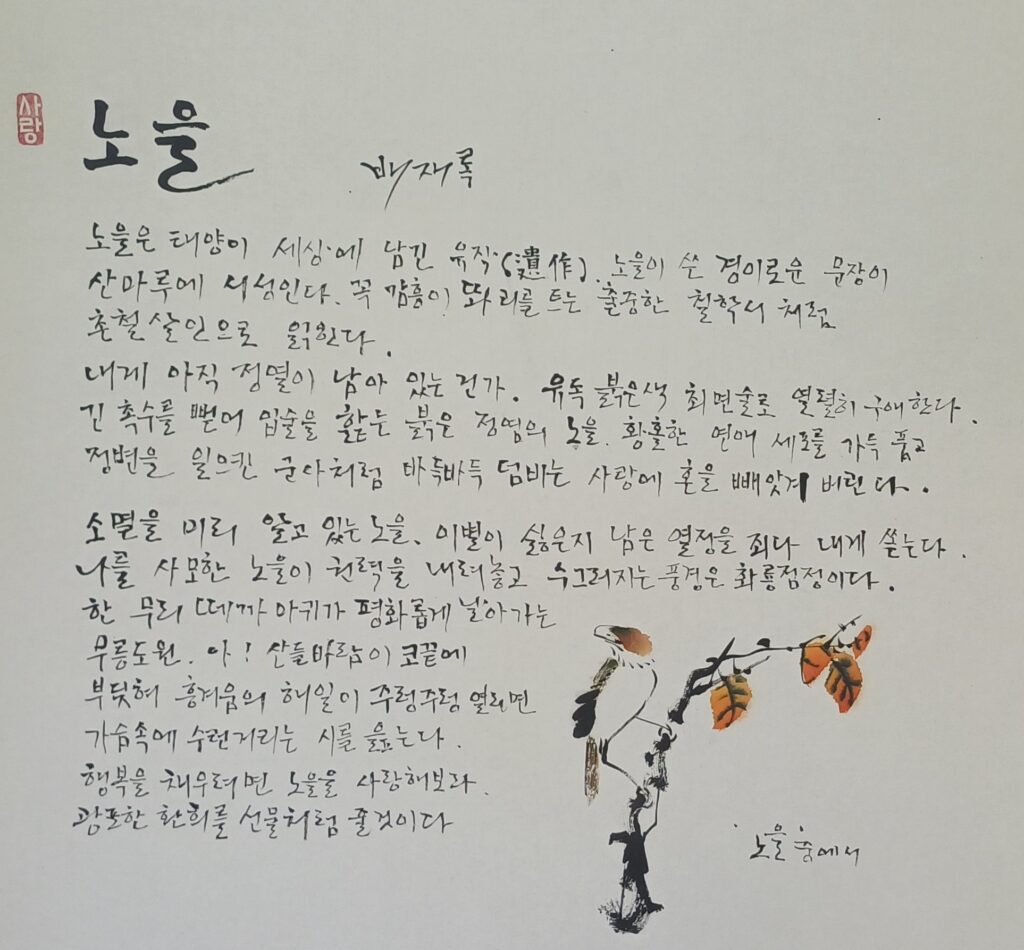 사랑
노을
배재록
노을은 태양이 세상에 남긴 유작(遺作). 노을이 쓴 경이로운 문장이
산마루에 서성인다. 꼭 감흥이 똬리를 트는 출중한 철학서 처럼
촌철살인으로 읽힌다.
내게 아직 정열이 남아 있는건가. 유독 붉은색 최면술로 열렬히 구애한다.
긴 촉수를 뻗어 입술을 핥는 붉은 정염의 노을. 황홀한 연애 세포를 가득 품고
정변을 일으킨 군사처럼 바득바득 덤비는 사랑에 혼을 빼앗겨 버린다.
소멸을 미리 알고 있는 노을. 이별이 싫은지 남은 열정을 죄다 내게 쏟는다.
나를 사모한 노을이 권력을 내려놓고 수그러지는 풍경은 화룡점정이다.
한 무리 떼까마귀가 평화롭게 날아가는
무릉도원. 아! 산들바람이 코끝에
부딪혀 흥겨움의 해일이 주렁주렁 열리면
가슴속에 수런거리는 시를 읊는다.
행복을 채우려면 노을을 사랑해보라.
광포한 환희를 선물처럼 줄것이다
노을 중에서